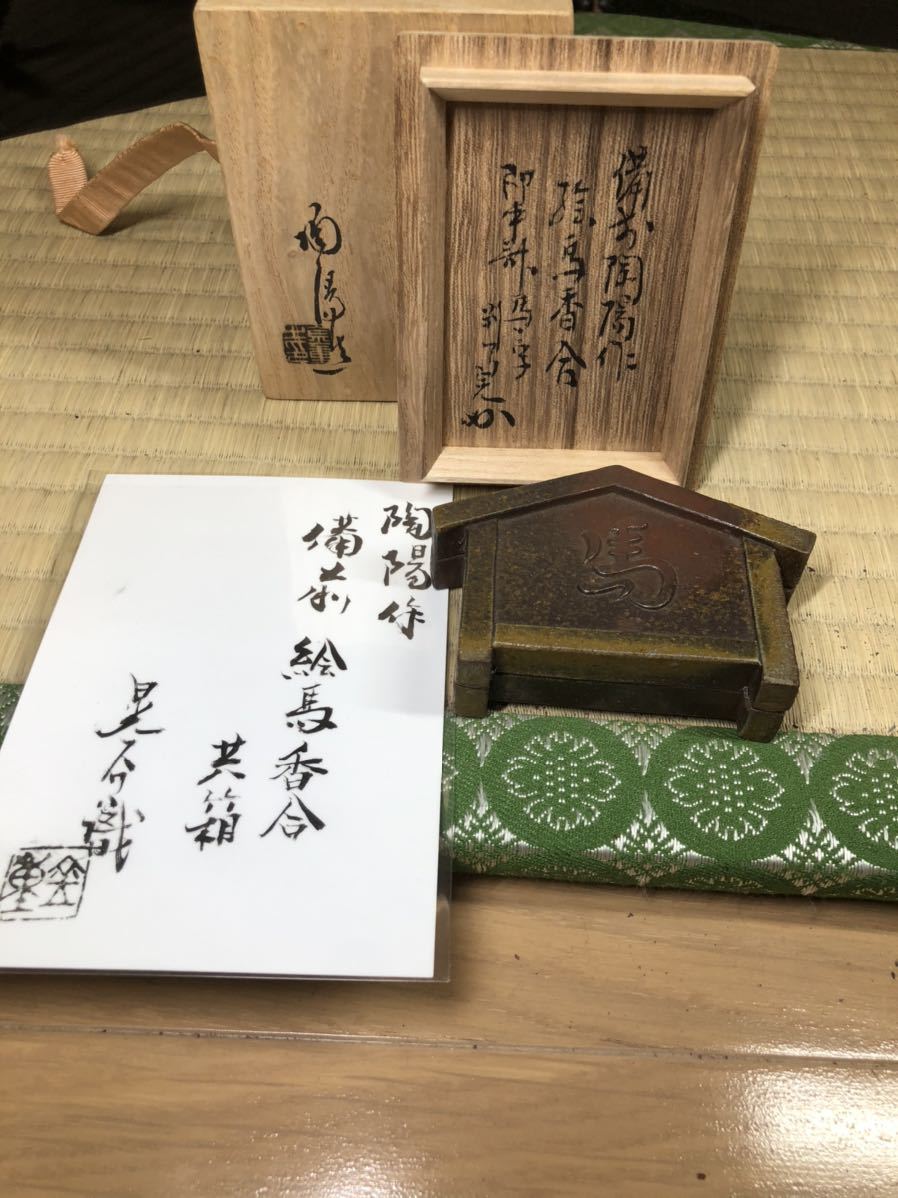 陶陽造
備前陶陽作
絵馬香合
即中斎馬字
馬
陶陽作
備前
絵馬香合
共箱